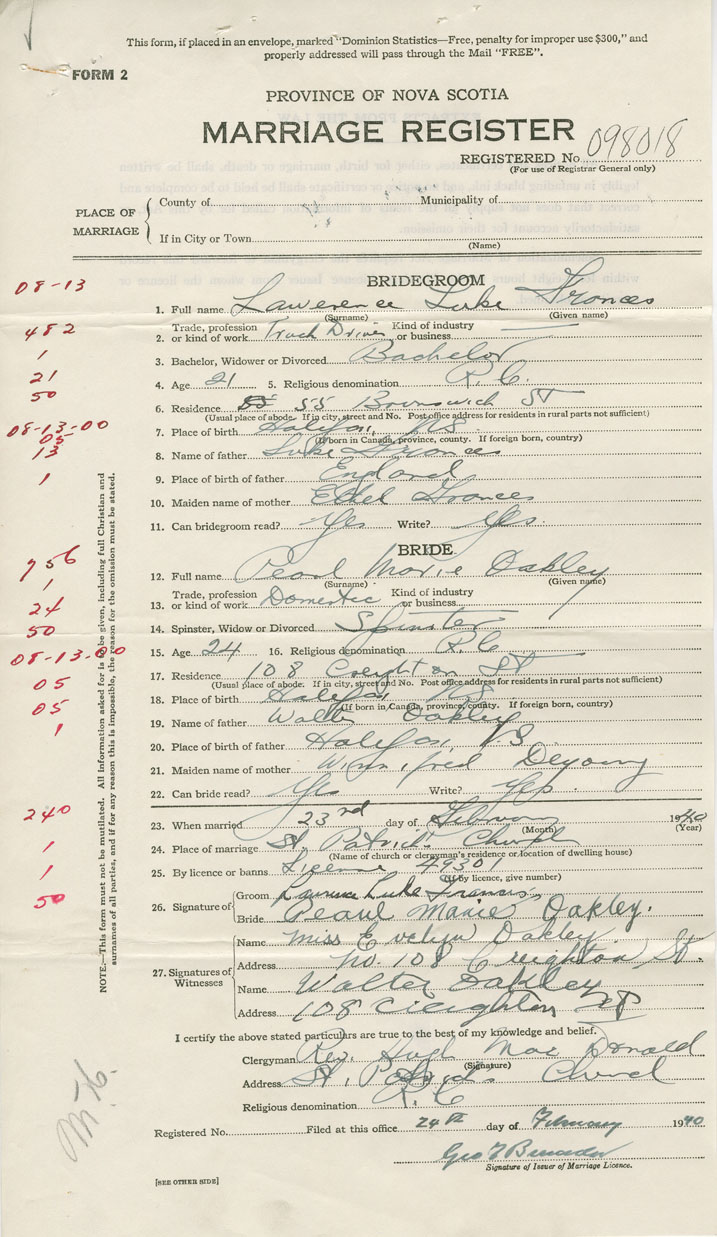 This form, if placed in an envelope, marked "Dominion Statistics—Free, penalty for improper use $300," and
properly addressed will pass through the Mail "FREE".
FORM 2
PROVINCE OF NOVA SCOTIA
MARRIAGE REGISTER
REGISTERED No. 098018
(For use of Registrar General only)
PLACE OF MARRIAGE
County of Municipality of
If in City or Town
(Name)
08-13
BRIDEGROOM
1. Full name Lawerence Luke Frances
(Surname) (Given name)
482
2. Trade, profession or kind of work Truck Driver Kind of industry or business
1
3. Bachelor, Widower or Divorced Bachelor
21
4. Age 21 5. Religious denomination R.C.
50
6. Residence 55 Brunswick St
(Usual place of abode. If in city, street and No. Post office address for residents in rural parts not sufficient)
08-13-00
7. Place of birth Halifax, N.S
(If born in Canada, province, county. If foreign born, country)
05
13
8. Name of father Luke Frances
1
9. Place of birth of father England
10. Maiden name of mother Ethel Frances
11. Can bridegroom read? Yes Write? Yes.
BRIDE
756
12. Full name Pearl Marie Oakley
(Surname) (Given name)
1
24
13. Trade, profession or kind of work Domestic Kind of industry or business
50
14. Spinster, Widow or Divorced Spinster
08-13-00
15. Age 24 16. Religious denomination R.C
05
17. Residence 108 Creighton St
(Usual place of abode. If in city, street and No. Post office address for residents in rural parts not sufficient)
05
18. Place of birth Halifax, NS
(If born in Canada, province, county. If foreign born, country)
1
19. Name of father Walter Oakley
20. Place of birth of father Halifax, N.S.
21. Maiden name of mother Winnifred Deyoung
22. Can bride read? Yes Write? Yes
240
23. When married 23rd day of February 1940
(Month) (Year)
1
24. Place of marriage St. Patrick's Church
(Name of church or clergyman's residence or location of dwelling house)
1
25. By licence or banns License 49301
(If by licence, give number)
50
26. Signature of
Groom Lawrence Luke Francis
Bride Pearl Marie Oakley.
27. Signatures of Witnesses
Name Miss Evelyn Oakley
Address No. 108 Creighton St.
Name Walter Oakley
Address 108 Creighton St
I certify the above stated particulars are true to the best of my knowledge and belief.
Clergyman Rev. Hugh MacDonald
(Signature)
Address St. Patrick's Church
Religious denomination R.C
Registered No. Filed at this office 24th day of February 1940
Signature of Issuer of Marriage Licence.
[SEE OTHER SIDE]
NOTE.—This form must not be mutilated. All information asked for is to be given, including full Christian and
surnames of all parties, and if for any reason this is impossible, the reason for the omission must be stated.